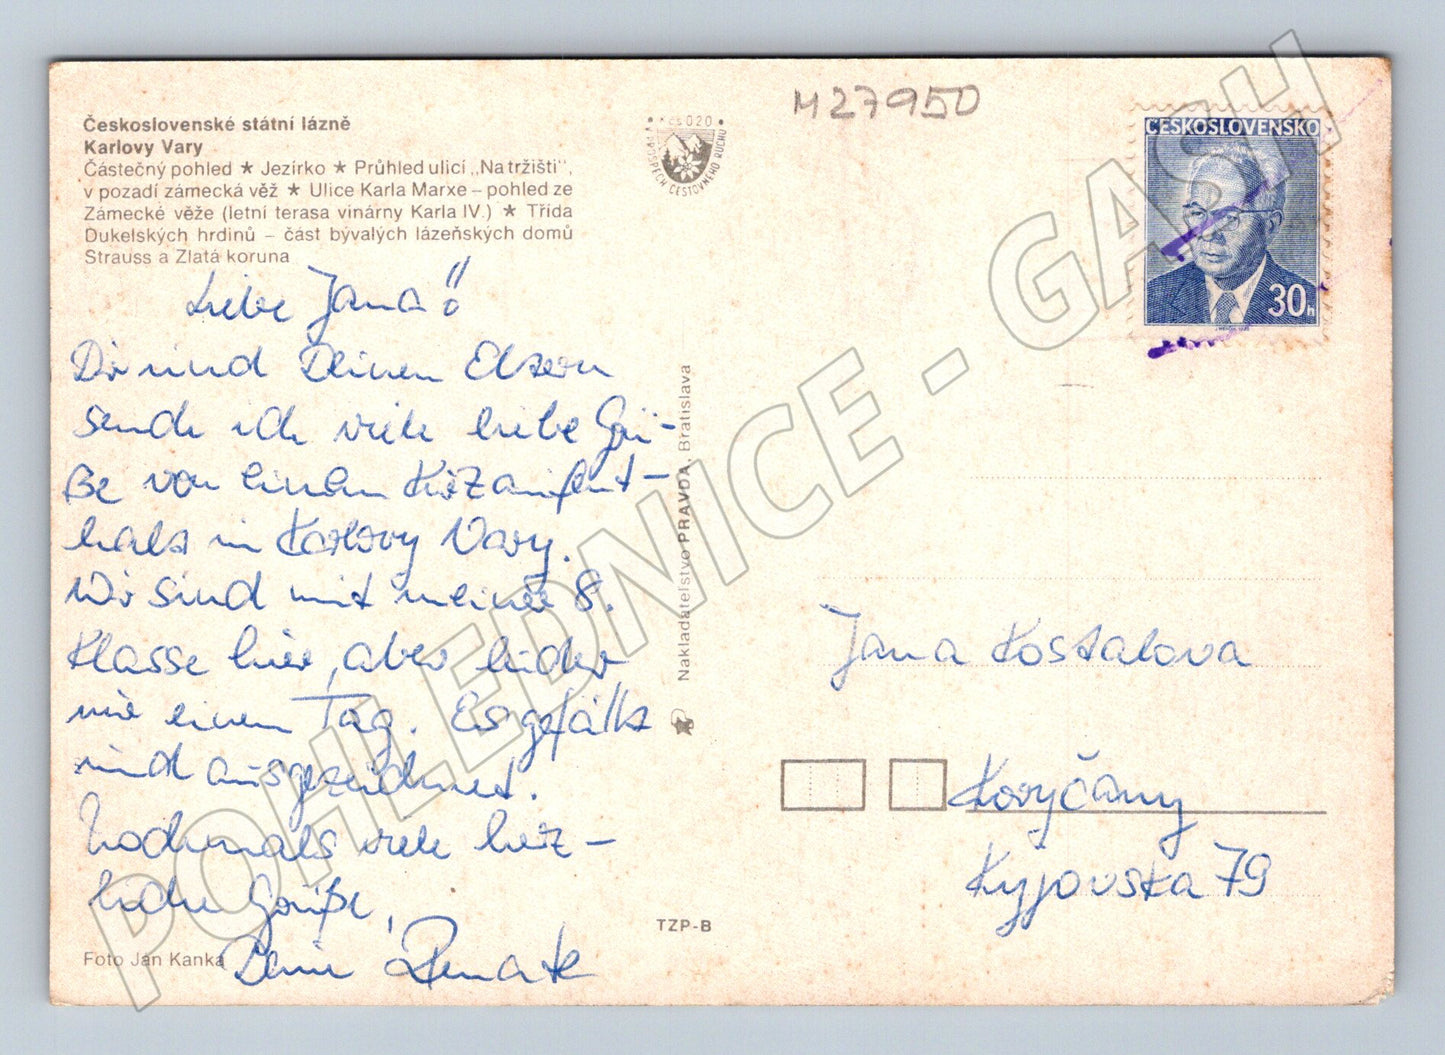 Československé státní lázně
Karlovy Vary
Částečný pohled ★ Jezírko ★ Průhled ulicí „Na tržišti“,
v pozadí zámecká věž ★ Ulice Karla Marxe – pohled ze
Zámecké věže (letní terasa vinárny Karla IV.) ★ Třída
Dukelských hrdinů – část bývalých lázeňských domů
Strauss a Zlatá koruna
Liebe Jana!
Dir und Deinen Eltern
sende ich viele liebe Grü-
ße von einem Kurzaufent-
halt in Karlovy Vary.
Wir sind mit meiner 8.
Klasse hier, aber leider
nur einen Tag. Es gefällt
und ausgezeichnet.
Nochmals viele herz-
liche Grüße,
Deine Renate
Foto Jan Kanka
Kčs 020
K PROSPĚCH CESTOVNÉHO RUCHU
Nakladatelstvo PRAVDA, Bratislava
TZP-B
M27950
ČESKOSLOVENSKO
30h
Jana Kostalova
Koryčany
Kyjovska 79
POHLEDNICE - GASH